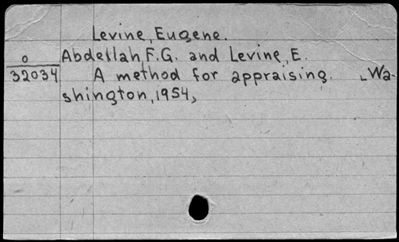 Levine, Eugene.
o Abdellah, F.G. and Levine, E.
32034 A method for appraising. Wa-
shington, 1954,